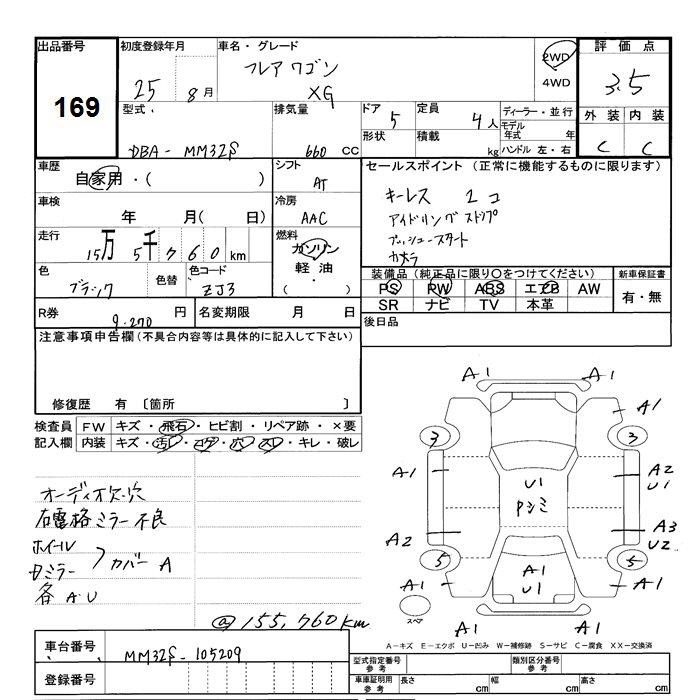 出品番号
169
初度登録年月
25 8月
車名・グレード
フレアワゴン
XG
2WD
4WD
評価点
3.5
外装 内装
C C
型式
DBA- MM32S
排気量
660 cc
ドア 5
形状
定員 4人
積載 kg
ディーラー・並行
モデル年式 年
ハンドル 左・右
車歴
自家用・( )
シフト
AT
セールスポイント(正常に機能するものに限ります)
キーレス 2コ
アイドリングストップ
プッシュースタート
カメラ
車検
年 月( 日)
冷房
AAC
走行
15万 5千 760 km
燃料
ガソリン
軽油
( )
色
ブラック
色替
色コード
ZJ3
装備品(純正品に限り○をつけてください)
PS PW ABS エアB AW
SR ナビ TV 本革
新車保証書
有・無
R券
9.270 円
名変期限 月 日
後日品
注意事項申告欄(不具合内容等は具体的に記入して下さい)
修復歴 有 〔箇所 〕
検査員記入欄
FW キズ・飛石・ヒビ割・リペア跡・×要
内装 キズ・汚レ・コゲ・穴・スレ・キレ・破レ
オーディオ欠.穴
右電格ミラー不良
ホイール
Dミラー
カバー A
各 A.U
@155,760km
A1 A1
A1
3 3
A1 U1 A2
Pシミ U1
A2 A3
U2
5 A1 5
A1 U1 A1
スペア
A1 A1
A-キズ E-エクボ U-凹み W-補修跡 S-サビ C-腐食 XX-交換済
車台番号
MM32S-105209
登録番号
型式指定番号
参考
類別区分番号
参考
車庫証明用
参考
長さ cm
幅 cm
高さ cm